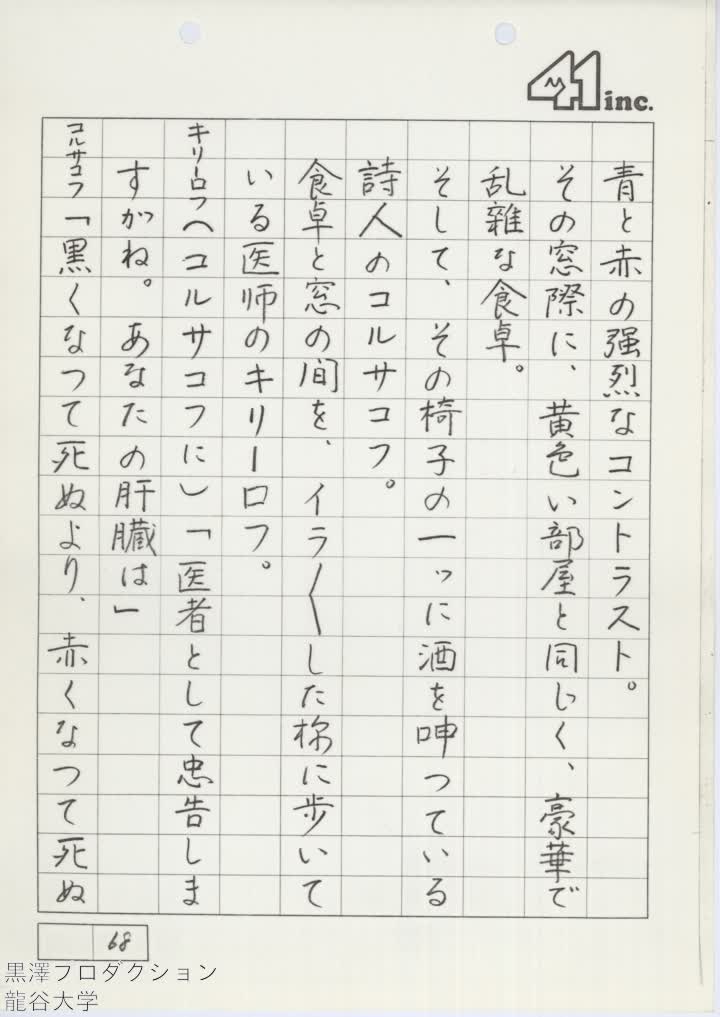 41 inc.
青と赤の強烈なコントラスト。
その窓際に、黄色い部屋と同じく、豪華で
乱雑な食卓。
そして、その椅子の一ッに酒を呻つている
詩人のコルサコフ。
食卓と窓の間を、イラ〱した様に歩いて
いる医師のキリーロフ。
キリーロフ(コルサコフに)「医者として忠告しま
すがね。あなたの肝臓は」
コルサコフ「黒くなつて死ぬより、赤くなつて死ぬ
68
黒澤プロダクション
龍谷大学